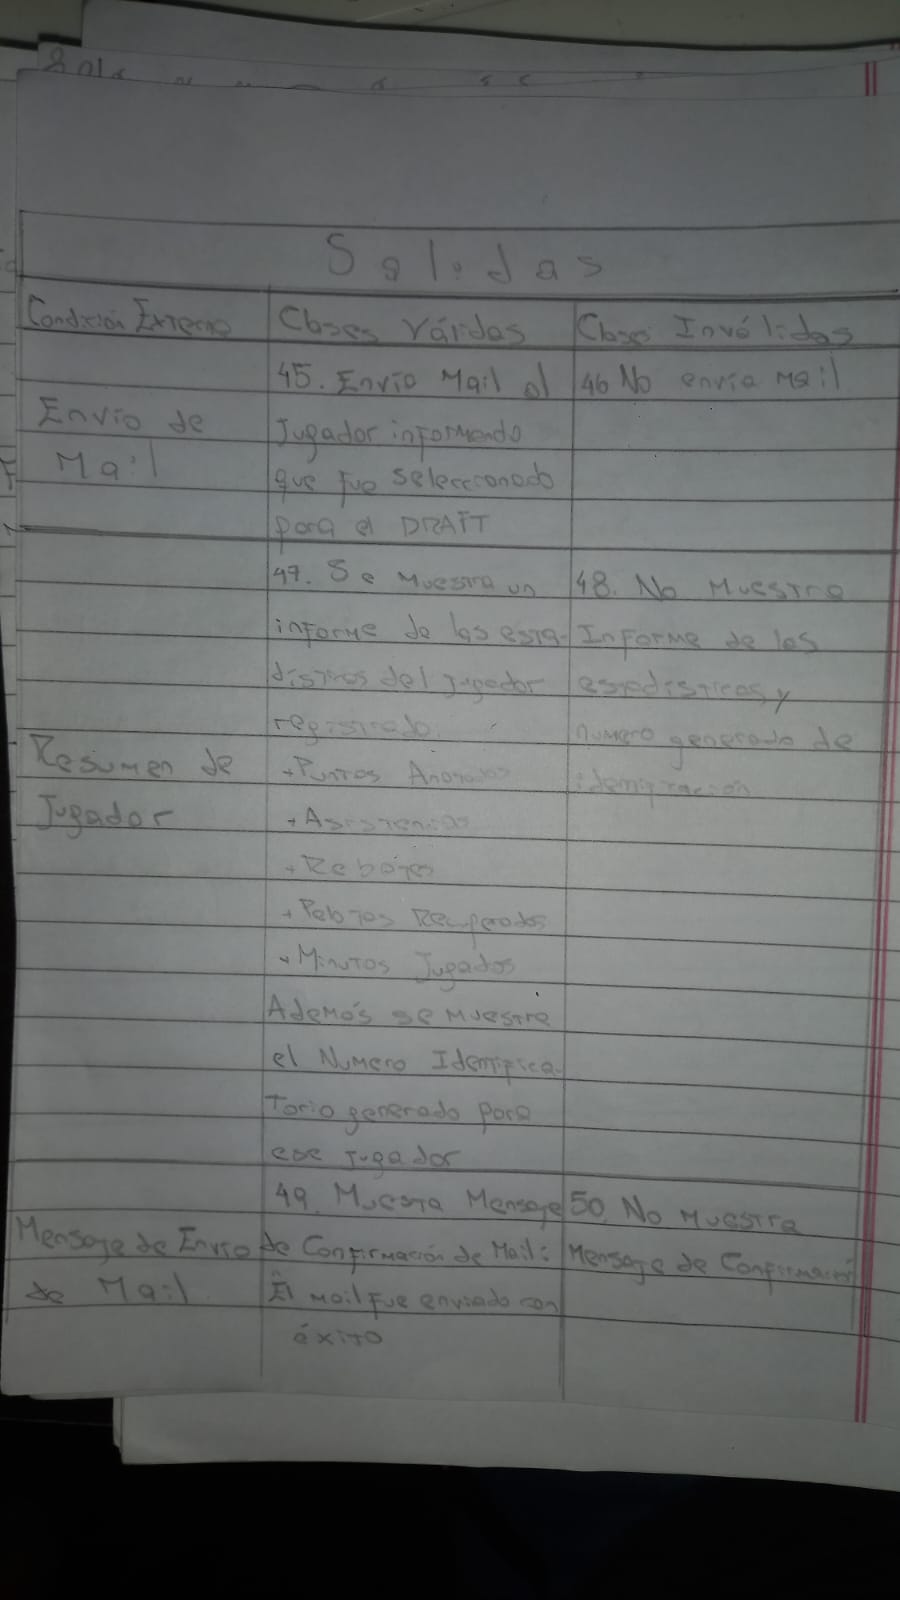 Salidas
Condición Externa
Clases Válidas
Clases Inválidas
45. Envío Mail al
Jugador informando
que fue seleccionado
para el DRAFT
46 No envía Mail
Envío de
Mail
47. Se muestra un
informe de las esta-
disticas del jugador
registrado.
+ Puntos Anotados
+ Asistencias
+ Rebotes
+ Pelotas Recuperados
+ Minutos Jugados
Además se muestra
el Numero Identifica-
torio generado para
ese jugador
48. No Muestra
Informe de las
estadisticas y
numero generado de
Resumen de
Jugador
49. Muestra Mensaje
de Confirmación de Mail:
El mail fue enviado con
éxito
50. No Muestra
Mensaje de Confirmación
Mensaje de Envío
de Mail